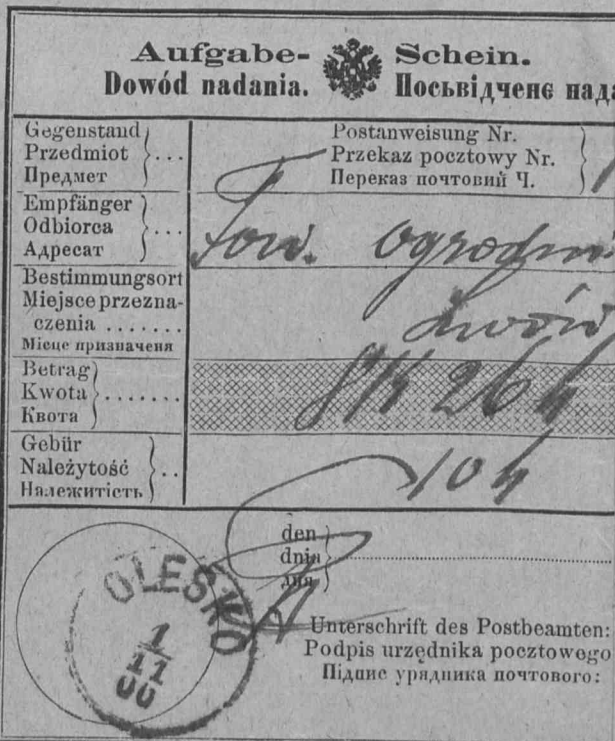 Aufgabe- Schein.
Dowód nadania. Посьвідченє нада
Gegenstand
Przedmiot ...
Предмет
Postanweisung Nr.
Przekaz pocztowy Nr.
Переказ почтовий Ч.
Empfänger
Odbiorca ...
Адресат
Tow. Ogrodni
Bestimmungsort
Miejsce przezna-
czenia .......
Місце призначеня
Lwów
Betrag
Kwota .......
Квота
8 K 26 h
Gebür
Należytość ..
Належитість
10 h
den
dnia
дня
OLESKO
1
11
00
Unterschrift des Postbeamten:
Podpis urzędnika pocztowego
Підпис урядника почтового: